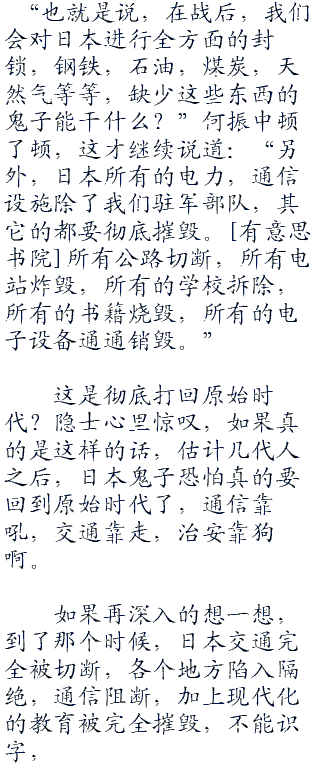 “也就是说，在战后，我们
会对日本进行全方面的封
锁，钢铁，石油，煤炭，天
然气等等，缺少这些东西的
鬼子能干什么？”何振中顿
了顿，这才继续说道：“另
外，日本所有的电力，通信
设施除了我们驻军部队，其
它的都要彻底摧毁。[有意思
书院]所有公路切断，所有电
站炸毁，所有的学校拆除，
所有的书籍烧毁，所有的电
子设备通通销毁。”
这是彻底打回原始时
代？隐士心里惊叹，如果真
的是这样的话，估计几代人
之后，日本鬼子恐怕真的要
回到原始时代了，通信靠
吼，交通靠走，治安靠狗
啊。
如果再深入的想一想，
到了那个时候，日本交通完
全被切断，各个地方陷入隔
绝，通信阻断，加上现代化
的教育被完全摧毁，不能识
字，